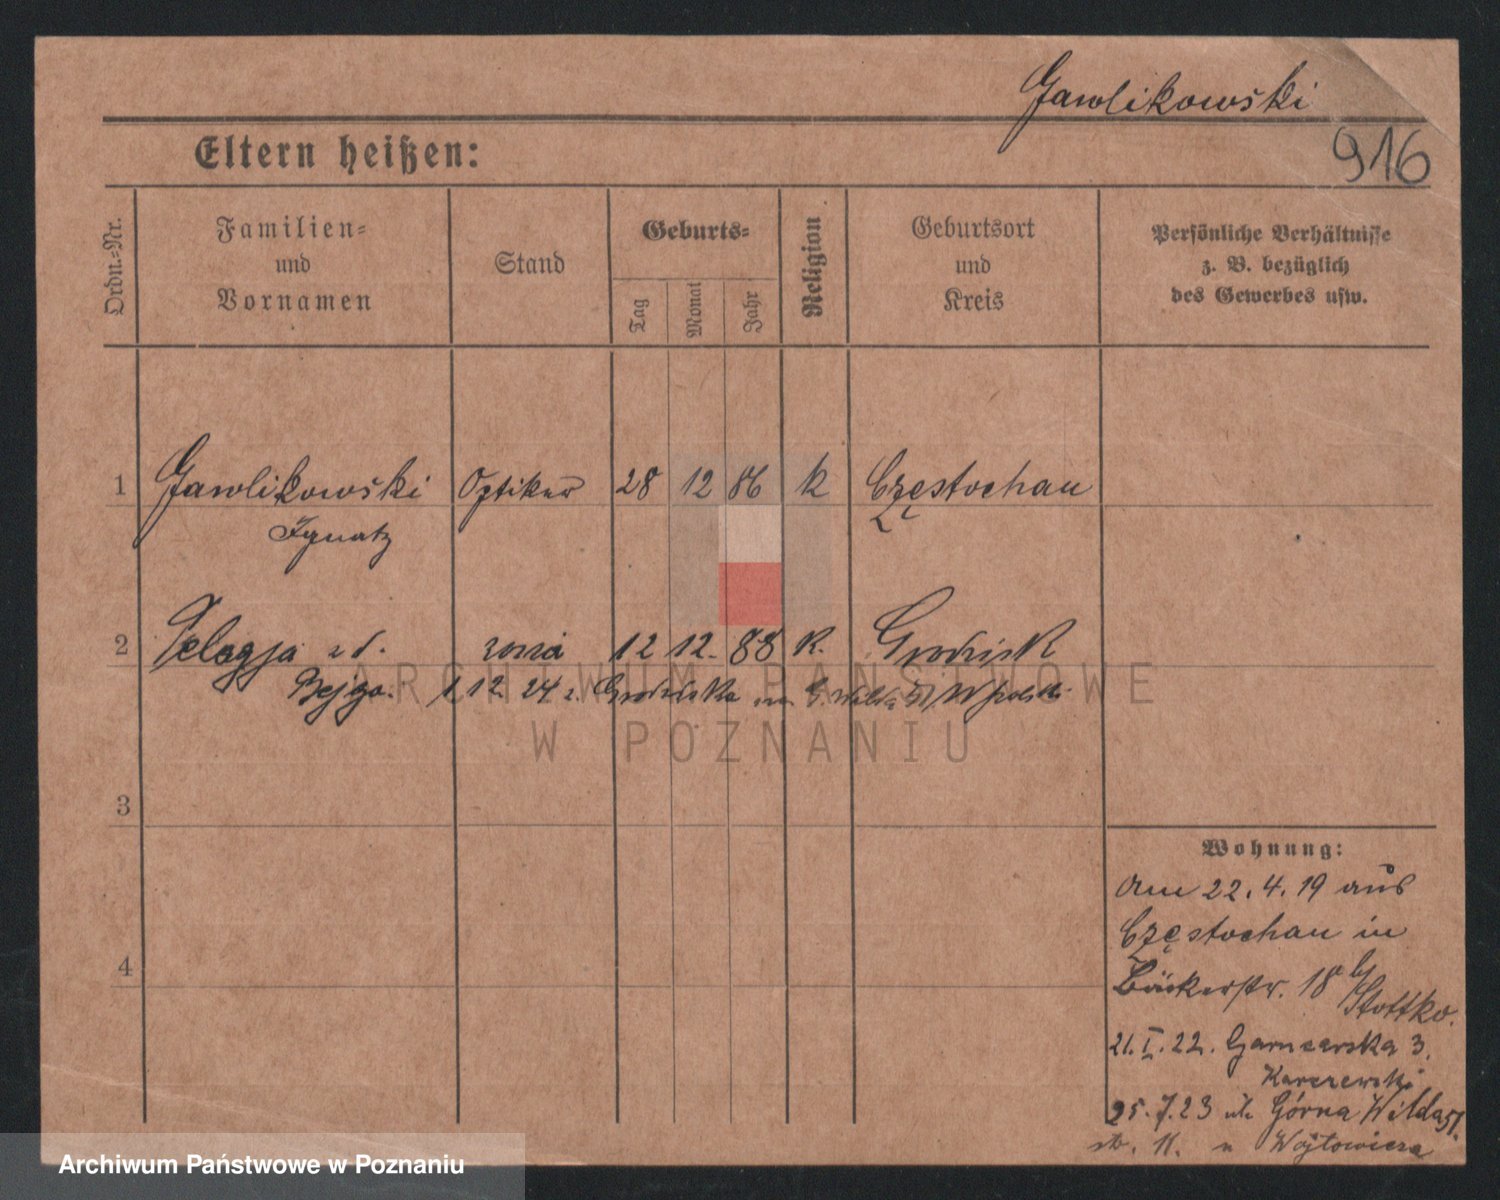 Gawlikowski
916
Eltern heißen:
Ordn.-Nr.
Familien-
und
Vornamen
Stand
Geburts-
Tag
Monat
Jahr
Religion
Geburtsort
und
Kreis
Persönliche Verhältnisse
z. B. bezüglich
des Gewerbes usw.
1 Gawlikowski Optiker 28 12 86 k Częstochau
Ignatz
2 Pelagja z d. żona 12 12. 88 k. Grodzisk
Bejga. 1 12 24 z Grodziska G. Wilda 51
ARCHIWUM PAŃSTWOWE
W POZNANIU
3
4
Wohnung:
Am 22.4.19 aus
Częstochau in
Bäckerstr. 18 b/
Stottko.
21.I.22. Garncarska 3.
Karczewski
25.7.23 ul. Górna Wilda 51.
u Wojtowicza
Archiwum Państwowe w Poznaniu